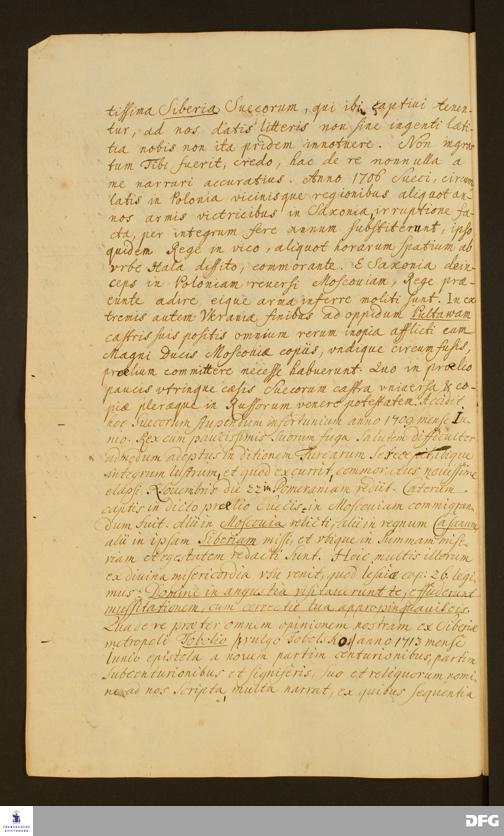 tissima Siberia Suecorum, qui ibi captivi tenen-
tur, ad nos datis litteris non sine ingenti læti-
tia nobis non ita pridem innotuere. Non ingra-
tum Tibi fuerit, credo, hac de re nonnulla a
me narrari accuratius. Anno 1706 Sueci, circum
latis in Polonia vicinisque regionibus aliquot an-
nos armis victricibus in Saxonia irruptione fa-
cta, per integrum fere annum substiterunt, ipso
quidem Rege in vico, aliquot horarum spatium ab
urbe Hala dissito, commorante. E Saxonia dein-
ceps in Poloniam reversi Moscoviam, Rege præ-
eunte adire, eique arma inferre moliti sunt. In ex
tremis autem Ukrania finibus ad oppidum Pultawam
castris suis positis omnium rerum inopia afflicti cum
Magni Ducis Moscoviæ copiis, undique circumfusis,
prœlium committere necesse habuerunt. Quo in prœlio
paucis utrinque cæsis Suecorum castra universa & co-
piæ pleræque in Russorum venere potestatem. Accidit
hoc Suecorum stupendum infortunium anno 1709 mense Iu-
nio. Rex cum paucissimis suorum fuga salutem difficulter
admodum adeptus in ditionem Turcarum se recepit, ibique
integrum lustrum, et quod excurrit, commoratus novissime
elapsi Novembris die 22 in Pomeraniam rediit. Caterum
captis in dicto prœlio Suecis, in Moscoviam commigran-
dum fuit. Alii in Moscovia relicti, alii in regnum Casanum
alii in ipsam Siberiam missi, et utique in summam mise-
riam et egestatem redacti sunt. Heic multis illorum
ex divina misericordia usu venit, quod Iesaiæ cap: 26. legi-
mus: Domine in angustia visitaverunt te, effuderunt
mussitationem, cum correctio tua appropinquavit eis.
Qua de re præter omnem opinionem nostram ex Siberiæ
metropoli Tobolio (vulgo Tobolsko) anno 1713 mense
Iunio epistola a novem partim centurionibus, partim
subcenturionibus et signiferis, suo et reliquorum nomi-
ne ad nos scripta multa narrat, ex quibus sequentia
FRANCKESCHE
STIFTUNGEN
DFG